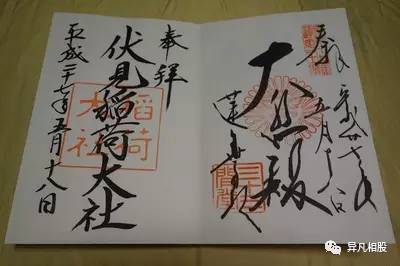 奉拝
平成廿七年
五月十八日
大悲殿
蓮華王院
三十三間堂
奉拝
伏見稲荷大社
稲荷大社
平成二十七年五月十八日
异凡相股